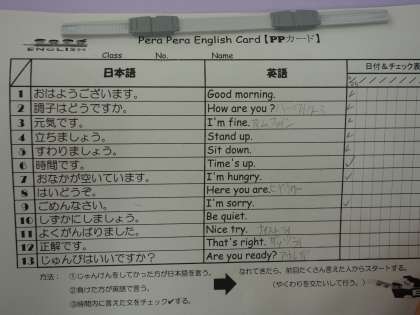 ENGLISH
Pera Pera English Card【PPカード】
Class No. Name
日本語 英語 日付&チェック表
1 おはようございます。 Good morning.
2 調子はどうですか。 How are you?
3 元気です。 I'm fine.
4 立ちましょう。 Stand up.
5 すわりましょう。 Sit down.
6 時間です。 Time's up.
7 おなかが空いています。 I'm hungry.
8 はいどうぞ。 Here you are.
9 ごめんなさい。 I'm sorry.
10 しずかにしましょう。 Be quiet.
11 よくがんばりました。 Nice try.
12 正解です。 That's right.
13 じゅんびはいいですか? Are you ready?
方法: ①じゃんけんをしてかった方が日本語を言う。
②負けた方が英語で言う。
③時間内に言えた文をチェック✔する。
②なれてきたら、前回たくさん言えた人からスタートする。
(やくわりを交たいして行う。)